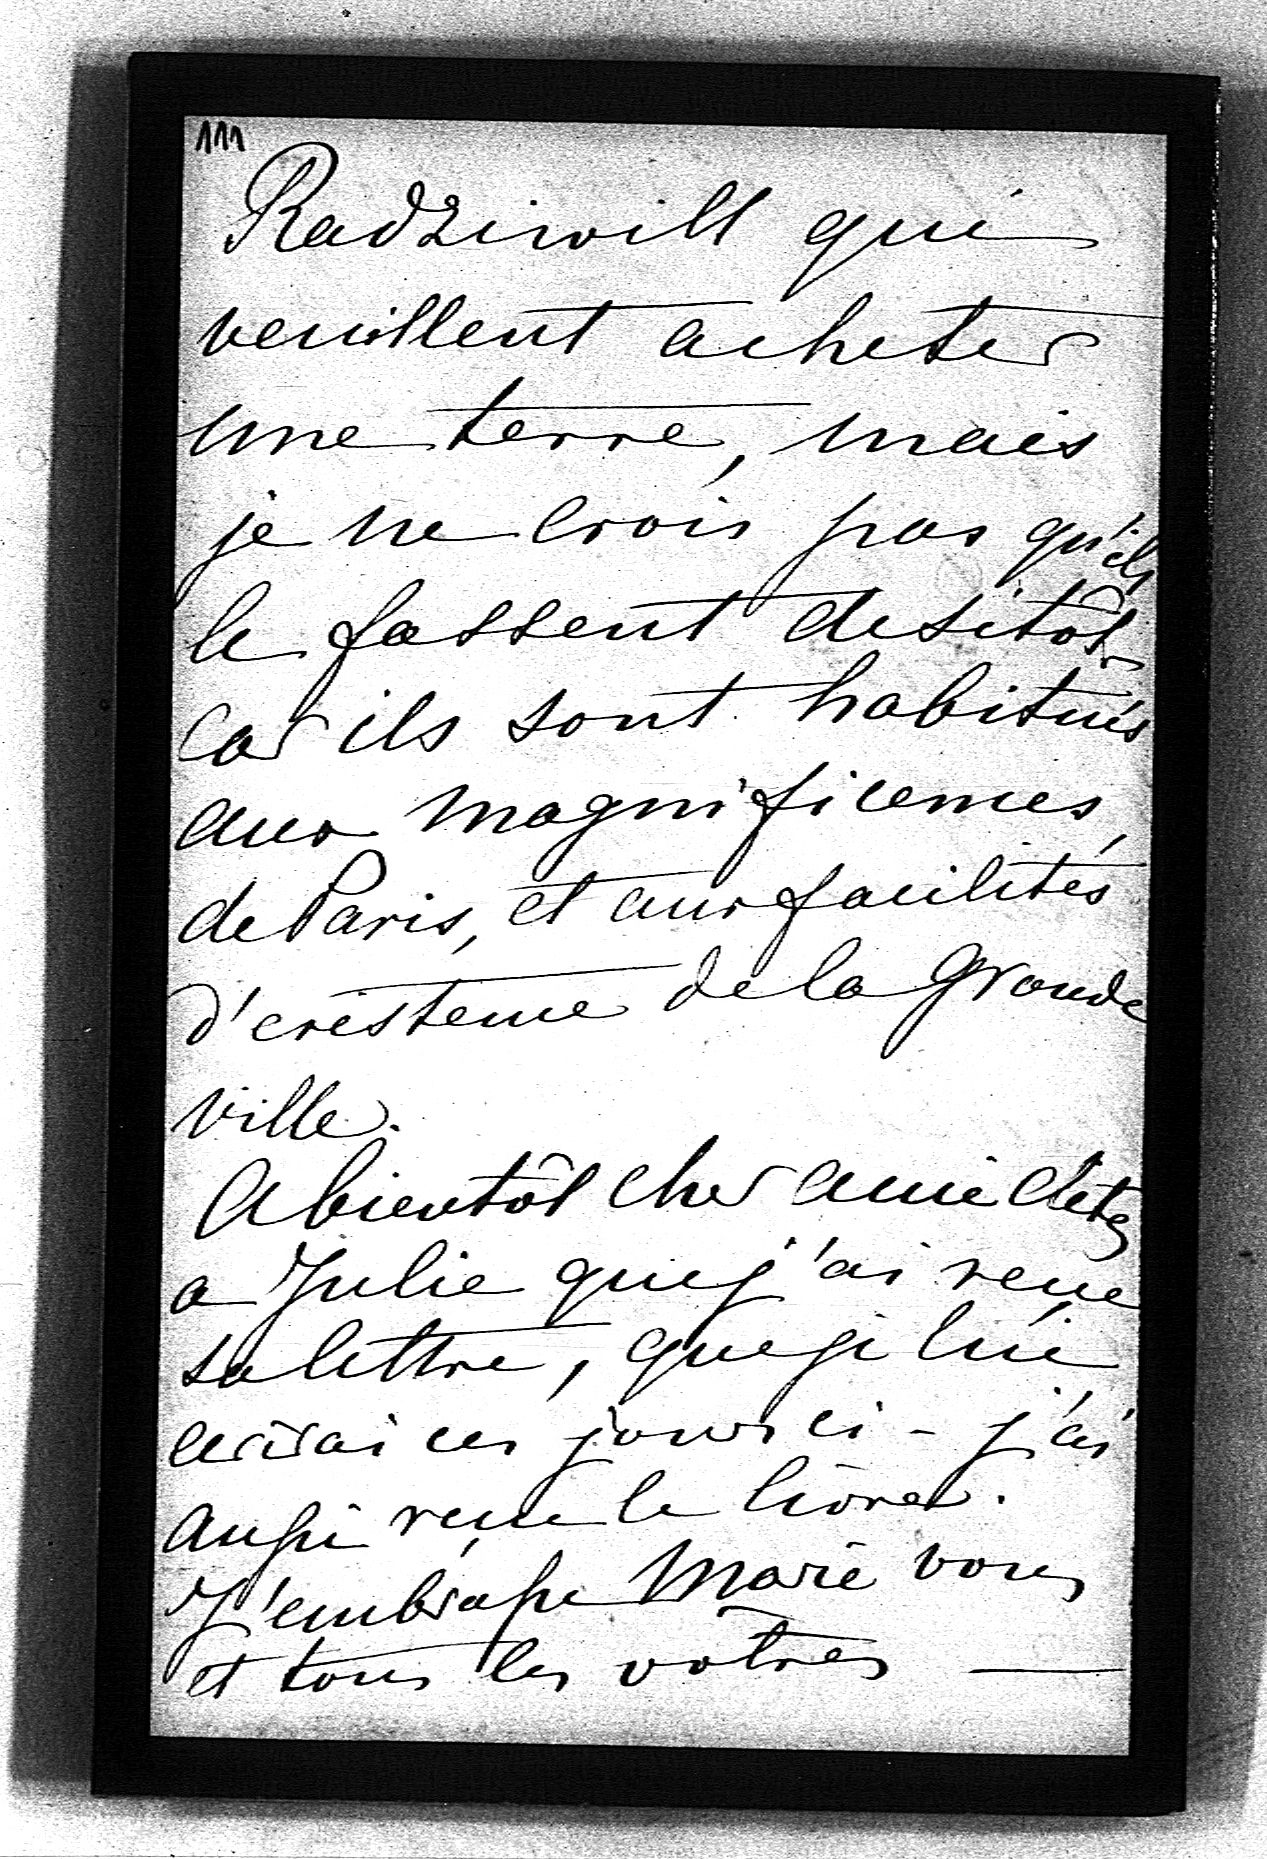 111
Radziwill qui
veuillent acheter
une terre, mais
je ne crois pas qu'ils
le fassent de sitôt
car ils sont habitués
aux magnificences,
de Paris, et aux facilités
d'existence de la grande
ville.
A bientôt cher ami dites
a Julie que j'ai reçue
sa lettre, que je lui
ecrirai ces jours ci - j'ai
aussi reçue le livre.
J'embrasse Marie vous
et tous les votres —